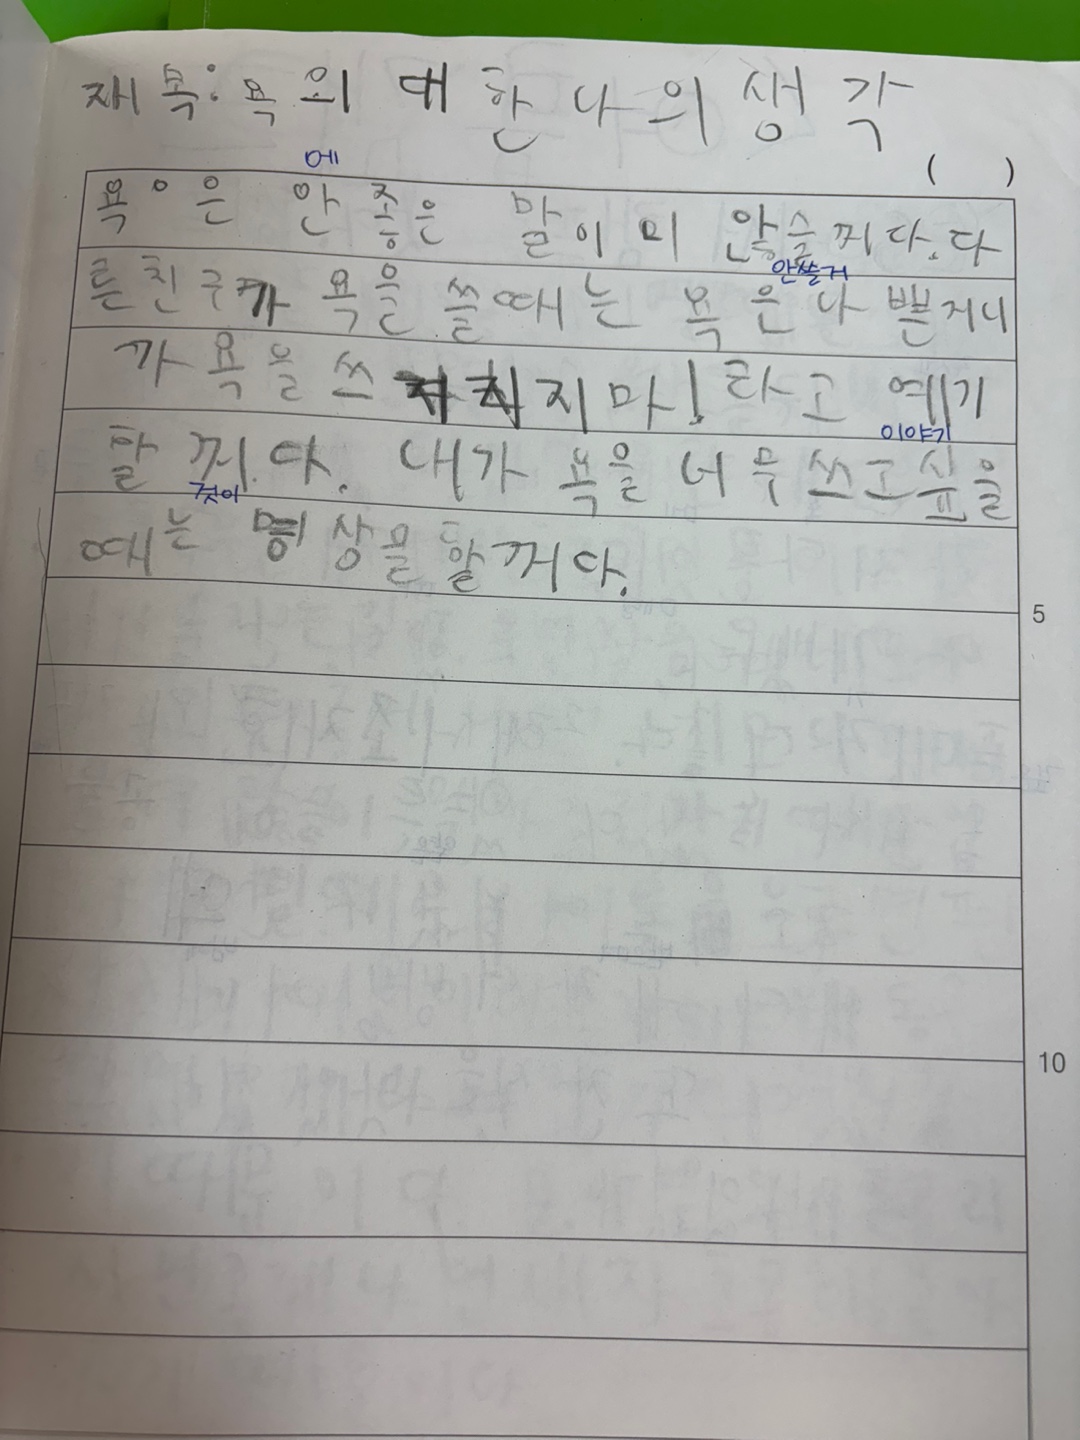 재목: 욕의 대한 나의 생각
에
( )
욕은 안 좋은 말이미 않슬꺼다. 다
안쓸거
른친구가 욕을 쓸때는 욕은 나쁜거니
까 욕을 쓰지마! 라고 예기
이야기
할꺼다. 내가 욕을 너무 쓰고싶을
것이
때는 명상을 할꺼다.
5
10